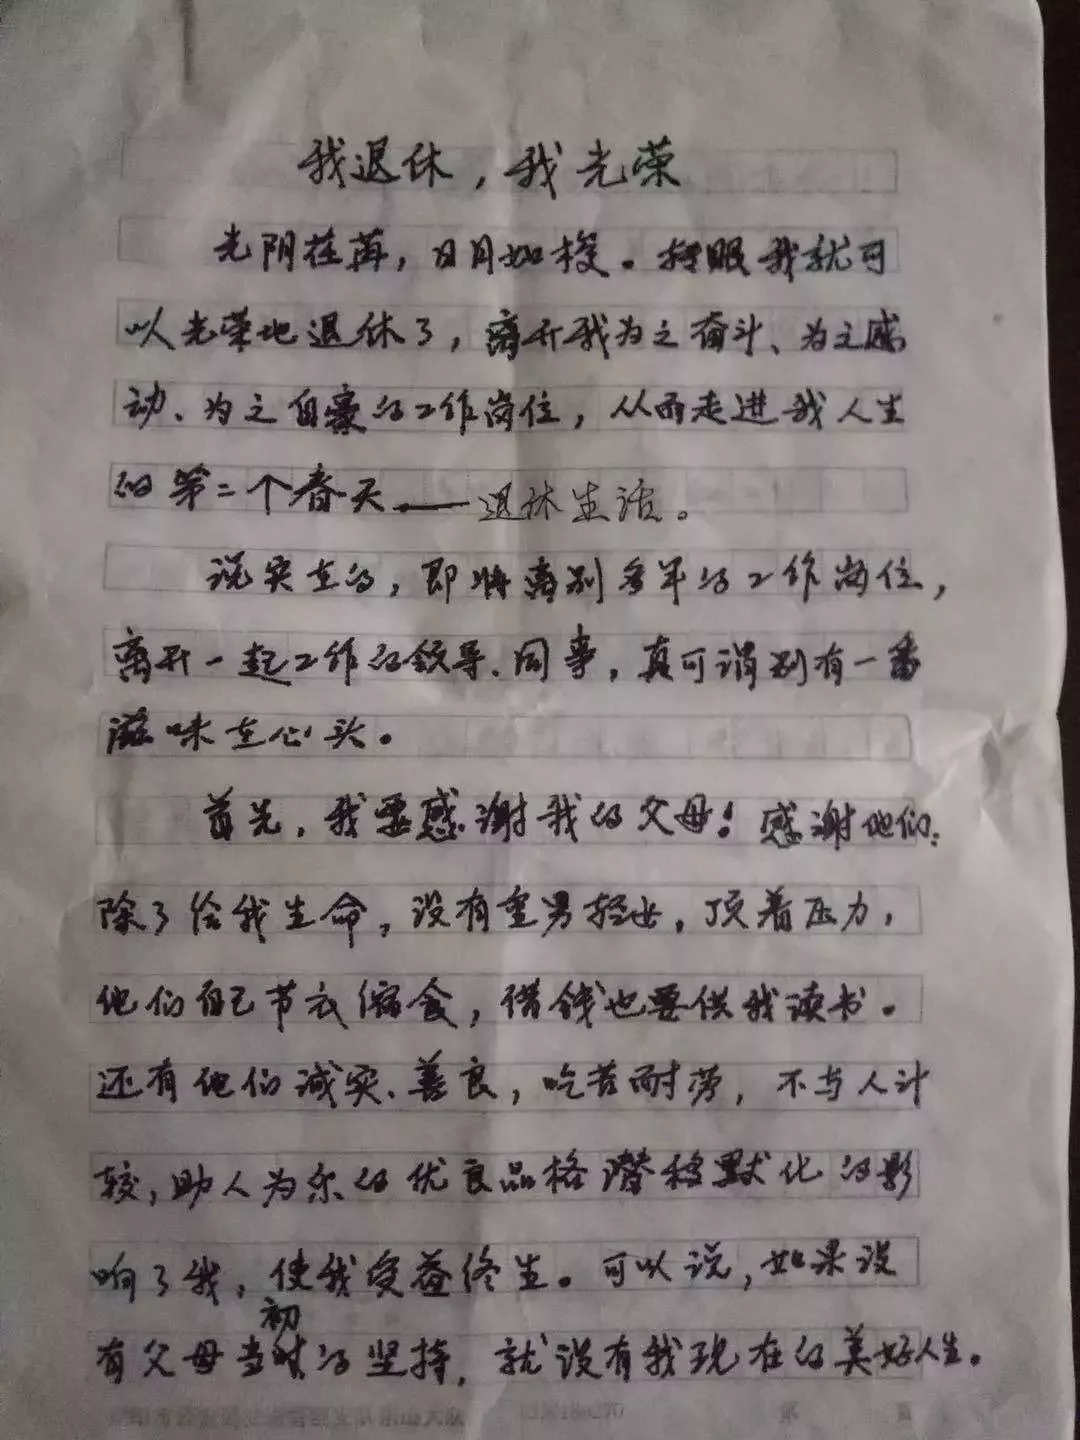 我退休，我光荣
光阴荏苒，日月如梭。转眼我就可
以光荣地退休了，离开我为之奋斗、为之感
动、为之自豪的工作岗位，从而走进我人生
的第二个春天——退休生活。
说实在的，即将离别多年的工作岗位，
离开一起工作的领导、同事，真可谓别有一番
滋味在心头。
首先，我要感谢我的父母！感谢他们：
除了给我生命，没有重男轻女，顶着压力，
他们自己节衣缩食，借钱也要供我读书。
还有他们诚实、善良，吃苦耐劳，不与人计
较，助人为乐的优良品格潜移默化的影
响了我，使我受益终生。可以说，如果没
初
有父母当时的坚持，就没有我现在的美好人生。